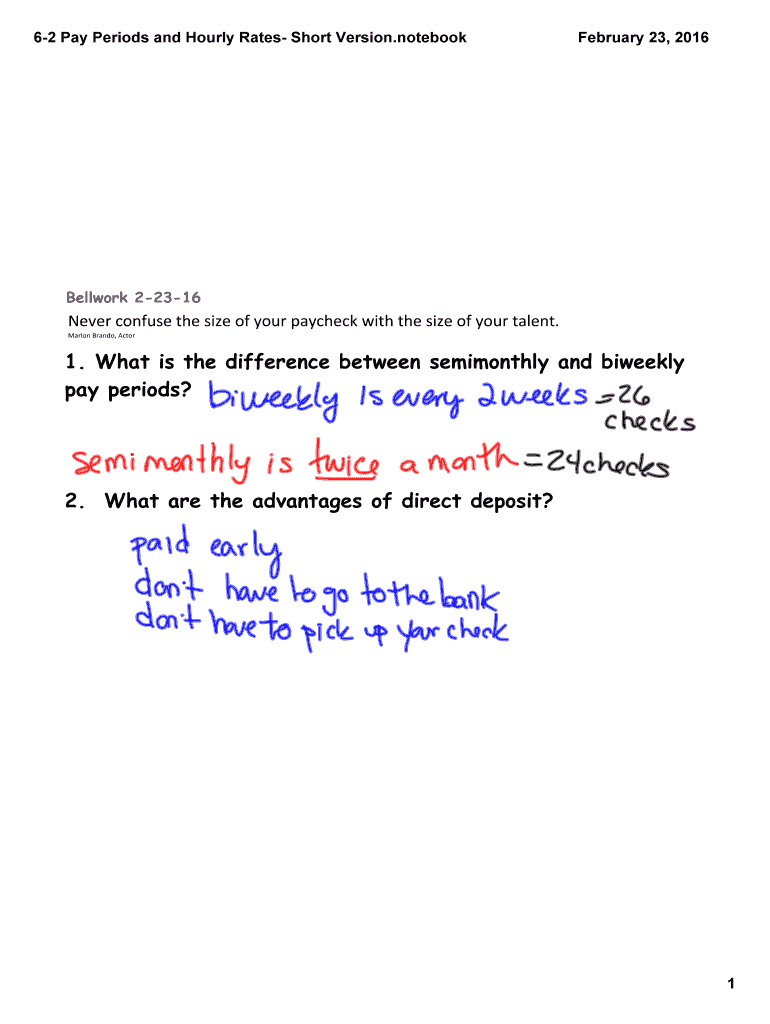 6-2 Pay Periods and Hourly Rates- Short Version.notebook February 23, 2016
Bellwork 2-23-16
Never confuse the size of your paycheck with the size of your talent.
Marlon Brando, Actor
1. What is the difference between semimonthly and biweekly
pay periods? biweekly is every 2 weeks = 26
checks
semimonthly is twice a month = 24 checks
2. What are the advantages of direct deposit?
paid early
don't have to go to the bank
don't have to pick up your check
1